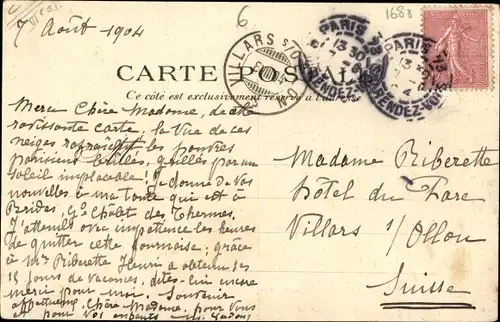 7 Août 1904
6
1688
VILLARS S/OLLON
PARIS
13 30
R. RENDEZ-VOUS
PARIS
13 30
R. RENDEZ-VOUS
CARTE POSTALE
Ce côté est exclusivement réservé à l'adresse
Merci Chère Madame, de cette
ravissante carte, la vue de ces
neiges rafraîchit les pauvres
parisiens brûlés, grillés par un
soleil implacable! Je donne de vos
nouvelles à ma tante qui est à
Brides, Gd Chalet des Thermes.
J'attends avec impatience les heures
de quitter cette fournaise; grâce
à Mr Riberette Henri a obtenu ses
15 jours de vacances, dites-lui encore
merci pour moi. Souvenir
affectueux, Chère Madame, pour vous
et pour vos enfants
Madame Riberette
Hôtel du Parc
Villars s/Ollon
Suisse